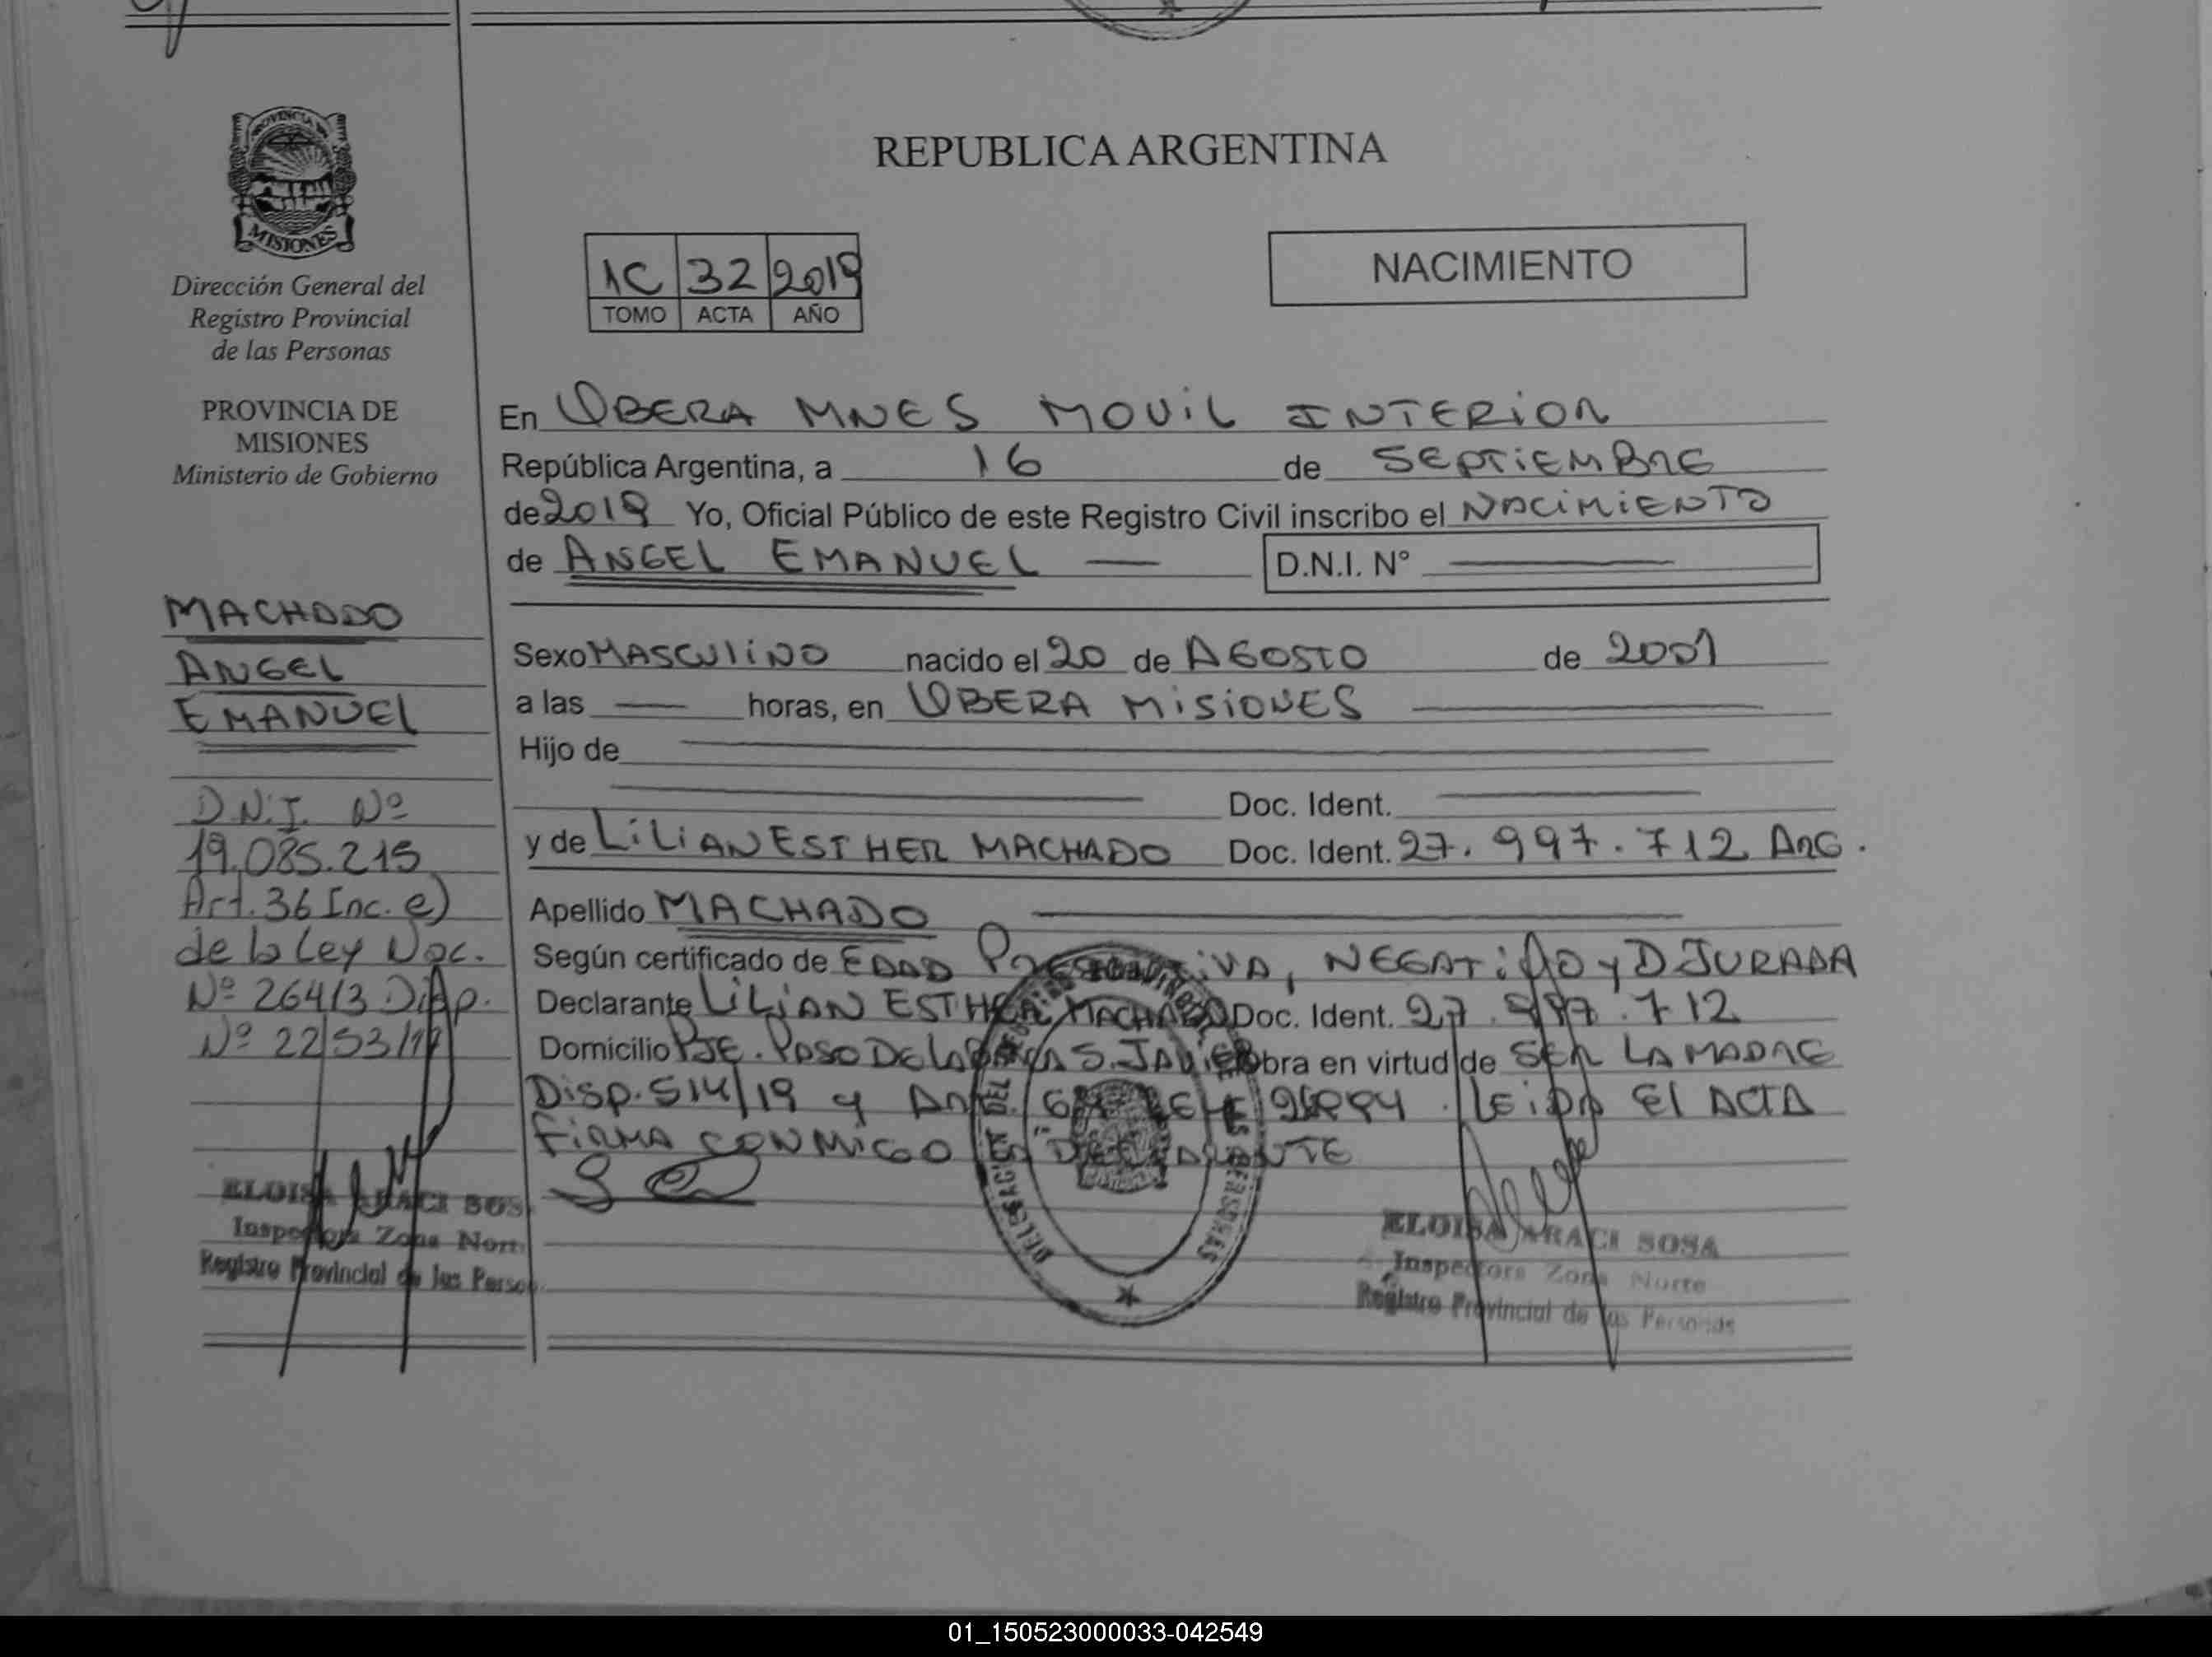 PROVINCIA DE
MISIONES
Dirección General del
Registro Provincial
de las Personas
PROVINCIA DE
MISIONES
Ministerio de Gobierno
MACHADO
ANGEL
EMANUEL
D.N.I. Nº
19.085.215
Art. 36 Inc. e)
de la Ley Nac.
Nº 26413 Disp.
Nº 2253/19
ELOISA ARACI SOS
Inspectora Zona Nort
Registro Provincial de las Person
REPUBLICA ARGENTINA
1C 32 2019
TOMO ACTA AÑO
NACIMIENTO
En OBERA MNES MOVIL INTERIOR
República Argentina, a 16 de SEPTIEMBRE
de 2019 Yo, Oficial Público de este Registro Civil inscribo el NACIMIENTO
de ANGEL EMANUEL — D.N.I. N° —
Sexo MASCULINO nacido el 20 de AGOSTO de 2001
a las — horas, en OBERA MISIONES —
Hijo de —
— Doc. Ident. —
y de LILIAN ESTHER MACHADO Doc. Ident. 27.997.712 ARG.
Apellido MACHADO —
Según certificado de EDAD PRESUNTIVA, NEGATIVO Y D JURADA
Declarante LILIAN ESTHER MACHADO Doc. Ident. 27.997.712
Domicilio PJE. PASO DE LA BARCA S. JAVIER Obra en virtud de SER LA MADRE
DISP. 514/19 y LEIDA El ACTA
FIRMA CONMIGO DECLARANTE
ELOISA ARACI SOSA
Inspectora Zona Norte
Registro Provincial de las Personas
01_150523000033-042549